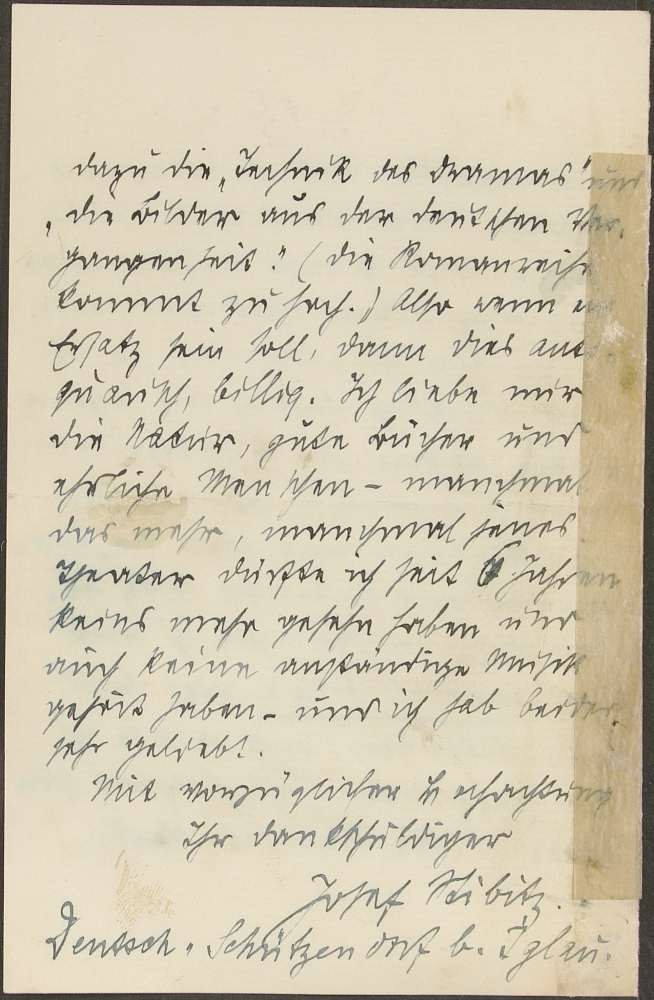 dazu die „Technik des Dramas" und
„die Bilder aus der deutschen Ver-
gangenheit." (die Romanreihe
kommt zu hoch.) Also wenn ein
Ersatz sein soll, dann dies anti-
quarisch, billig. Ich liebe mir
die Natur, gute Bücher und
ehrliche Menschen – manchmal
das mehr, manchmal jenes.
Theater dürfte ich seit 6 Jahren
keins mehr gesehn haben und
auch keine anständige Musik
gehört haben – und ich hab beides
sehr geliebt.
Mit vorzüglicher Hochachtung
Ihr dankschuldiger
Josef Stibitz.
Deutsch-Schützendorf b. Iglau.